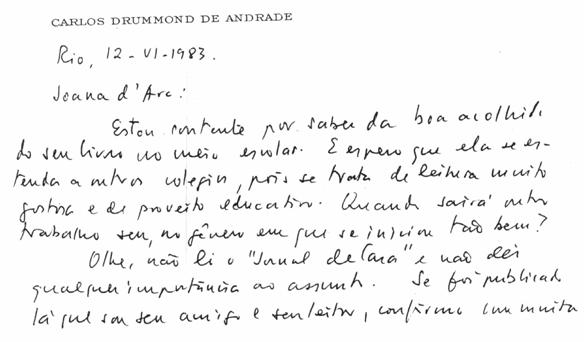 CARLOS DRUMMOND DE ANDRADE
Rio, 12-VI-1983.
Joana d'Arc:
Estou contente por saber da boa acolhida
do seu livro no meio escolar. E espero que ela se es-
tenda a outros colégios, pois se trata de leitura muito
gostosa e de proveito educativo. Quando sairá outro
trabalho seu, no gênero em que se iniciou tão bem?
Olhe, não li o "Jornal de Cara" e não dei
qualquer importância ao assunto. Se foi publicado
lá que sou seu amigo e seu leitor, confirmo com muita